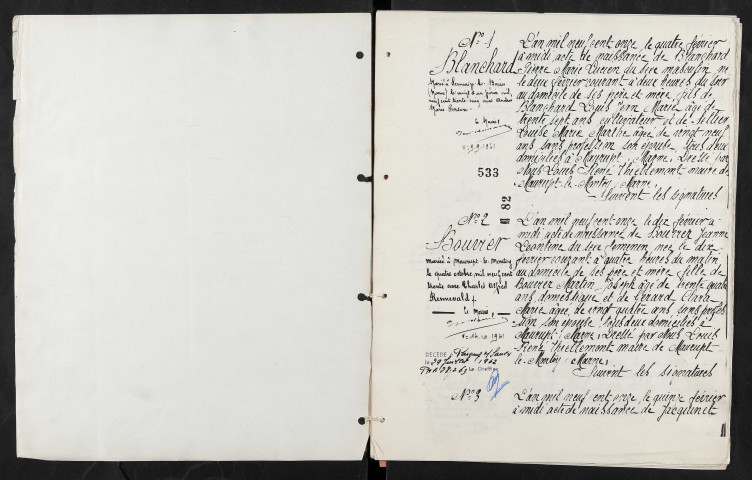 N° 1
Blanchard
Marié à Sermaize-les-Bains
(Marne) le vingt d'un juin mil
neuf cent trente
Le Maire,
1961
533
82
L'an mil neuf cent onze, le quatre février
à midi acte de naissance de Blanchard
Pierre Marie Lucien du sexe masculin né
le deux février courant à deux heures du soir
au domicile de ses père et mère, fils de
Blanchard Louis Jean Marie âgé de
trente sept ans cultivateur et de Tellier
Louise Marie Marthe âgée de vingt neuf
ans sans profession son épouse, tous deux
domiciliés à Maurupt, Marne, Dressé par
Nous Louis René Thiellemont maire de
Maurupt-le-Montoy, Marne,
Suivent les signatures
N° 2
Bouvier
mariée à Maurupt-le-Montoy
le quatre octobre mil neuf cent
trente avec Charles Alfred
Le Maire,
1961
DÉCÉDÉ à
le 29 1962
Le Greffier
L'an mil neuf cent onze, le dix février à
midi acte de naissance de Bouvier Jeanne
Léontine du sexe féminin née le dix
février courant à quatre heures du matin
au domicile de ses père et mère fille de
Bouvier Martin Joseph âgé de trente quatre
ans domestique et de Gérard Clara
Marie âgée, de vingt quatre ans sans profes
sion son épouse tous deux domiciliés à
Maurupt, Marne, Dressé par Nous Louis
René Thiellemont maire de Maurupt-
le-Montoy, Marne,
Suivent les signatures
N° 3
L'an mil neuf cent onze, le quinze février
à midi acte de naissance de Jacquinet